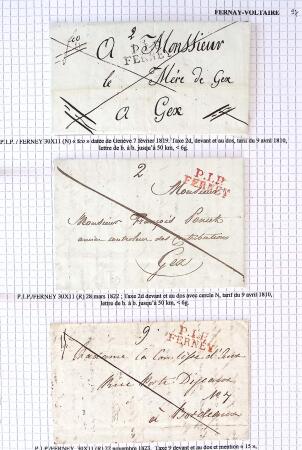 FERNAY-VOLTAIRE
2
P.P.
FERNEY
A Monsieur
le Mére de Gex
A Gex
P.I.P. / FERNEY 30X11 (N) « fco » datée de Genève 7 février 1819. Taxe 2d, devant et au dos, tarif du 9 avril 1810,
lettre de b. à b. jusqu'à 50 km, < 6g.
2
P.I.P.
FERNEY
Monsieur
Monsieur François
ancien controleur des Contributions
Gex
P.I.P./FERNEY 30X11 (R) 28 mars 1822 ; Taxe 2d devant et au dos avec cercle N, tarif du 9 avril 1810,
lettre de b. à b. jusqu'à 50 km, < 6g.
9
P.I.P.
FERNEY
Madame La Comtesse
Porte
No 7
à Bordeaux
P.I.P./FERNEY 30X11 (R) 22 novembre 1823. Taxe 9 devant et au dos et mention « 15 »,